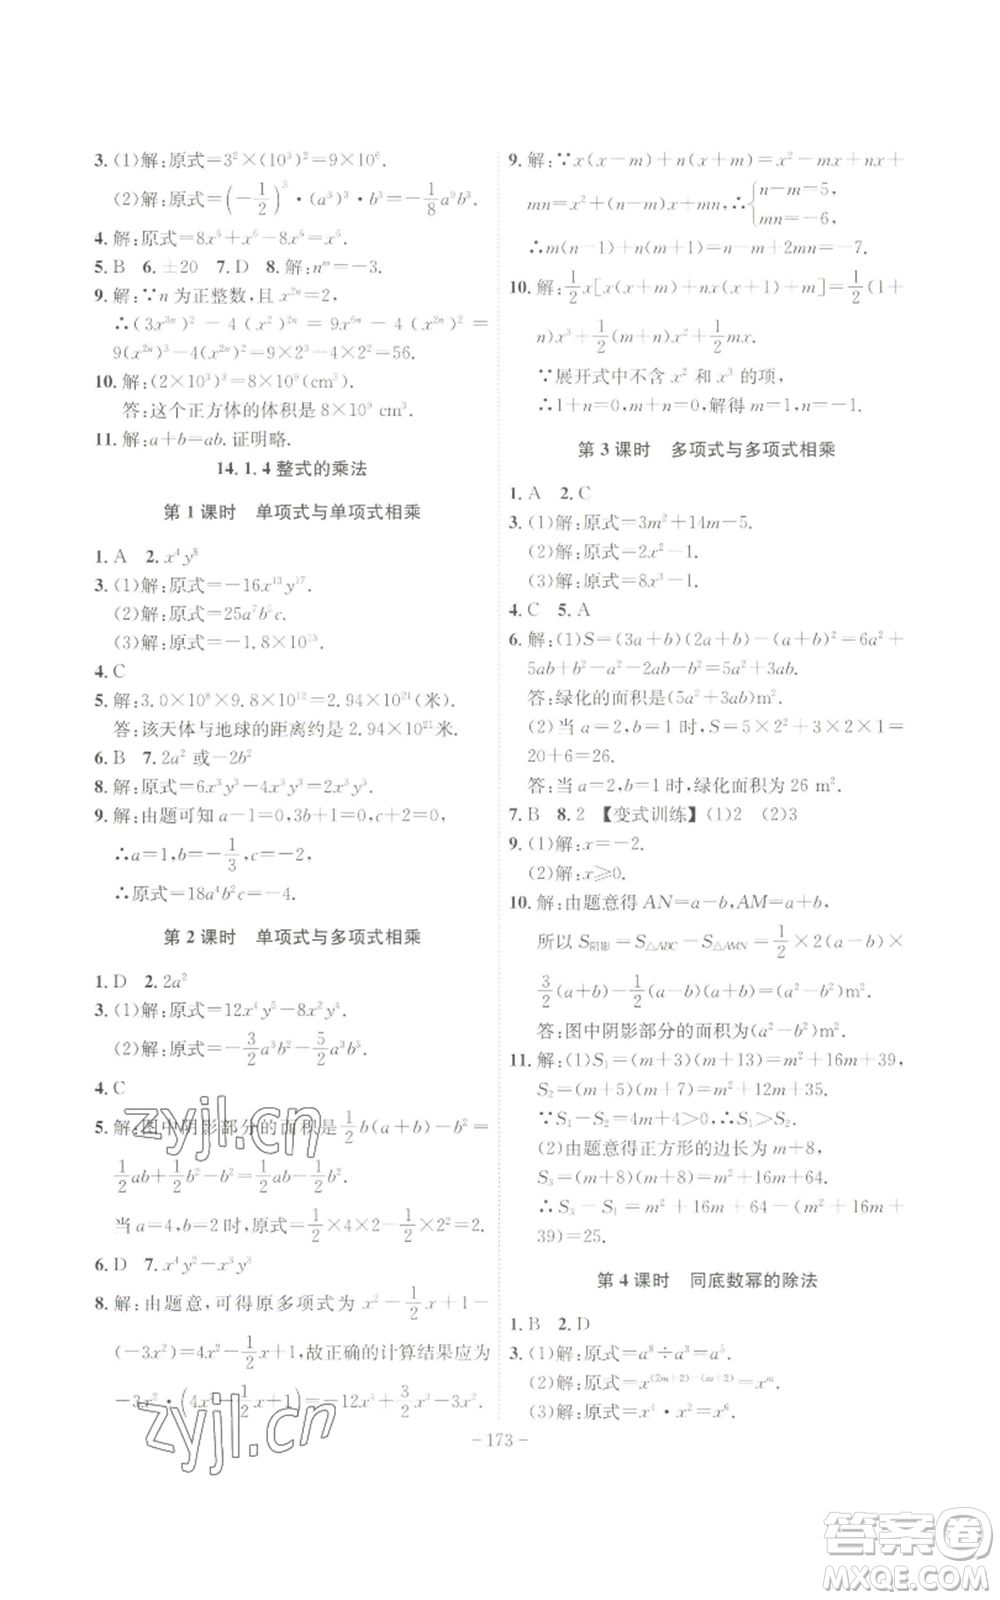 3. (1)解:原式=3²×(10³)²=9×10⁶.
(2)解:原式=(-1/2)³·(a³)³·b³=-1/8 a⁹b³.
4. 解:原式=8x⁶+x⁶-8x⁶=x⁶.
5. B 6. ±20 7. D 8. 解:nᵐ=-3.
9. 解:∵n 为正整数,且 x²ⁿ=2,
∴(3x³ⁿ)²-4(x²ⁿ)²=9x⁶ⁿ-4(x²ⁿ)²=
9(x²ⁿ)³-4(x²ⁿ)²=56.
10. 解:(2×10³)³=8×10⁹(cm³).
答:这个正方体的体积是 8×10⁹ cm³.
11. 解:a+b=ab. 证明略.
14.1.4整式的乘法
第 1 课时 单项式与单项式相乘
1. A 2. x⁴y⁸
3. (1)解:原式=-16x¹³y¹⁷.
(2)解:原式=25a⁷b⁵c.
(3)解:原式=-1.8×10¹³.
4. C
5. 解:3.0×10⁸×9.8×10¹²=2.94×10²¹(米).
答:该天体与地球的距离是 2.94×10²¹米.
6. B 7. 2a² 或-2b²
8. 解:原式=6x³y³-4x³y³=2x³y³.
9. 解:由题可知 a-1=0,3b+1=0,c+2=0,
∴a=1,b=-1/3,c=-2,
∴原式=18a⁴b²c=-4.
第 2 课时 单项式与多项式相乘
1. D 2. 2a²
3. (1)解:原式=12x⁴y⁵-8x²y⁴.
(2)解:原式=-3/2 a³b²-5/2 a³.
4. C
5. 解:图中阴影部分的面积是 1/2 b(a+b)-b²=
1/2 ab+1/2 b²-b²=1/2 ab-1/2 b².
当 a=4,b=2 时,原式=1/2×4×2-1/2×2²=2.
6. D 7. x⁴y²-x³y³
8. 解:由题意,可得原多项式为 x²-1/2 x+1-
(-3x²)=4x²-1/2 x+1,故正确的计算结果应为
-3x²·(4x²-1/2 x+1)=-12x⁴+3/2 x³-3x².
9. 解:∵x(x-m)+n(x+m)=x²-mx+nx+
mn=x²+(n-m)x+mn,∴{n-m=5, mn=-6,
∴m(n-1)+n(m+1)=n-m+2mn=-7.
10. 解:1/2 x[x(x+m)+nx(x+1)+m]=1/2(1+
n)x³+1/2(m+n)x²+1/2 mx.
∵展开式中不含 x² 和 x³ 的项,
∴1+n=0,m+n=0,解得 m=1,n=-1.
第 3 课时 多项式与多项式相乘
1. A 2. C
3. (1)解:原式=3m²+14m-5.
(2)解:原式=2x²-1.
(3)解:原式=8x³-1.
4. C 5. A
6. 解:(1)S=(3a+b)(2a+b)-(a+b)²=6a²+
5ab+b²-a²-2ab-b²=5a²+3ab.
答:绿化的面积是(5a²+3ab)m².
(2)当 a=2,b=1 时,S=5×2²+3×2×1=
20+6=26.
答:当 a=2,b=1 时,绿化面积为 26 m².
7. B 8. 2 【变式训练】(1)2 (2)3
9. (1)解:x=-2.
(2)解:x⩾0.
10. 解:由题意得 AN=a-b,AM=a+b,
所以 S阴影=S△ABC-S△AMN=1/2×2(a-b)×
3/2(a+b)-1/2(a-b)(a+b)=(a²-b²)m².
答:图中阴影部分的面积为(a²-b²)m².
11. 解:(1)S₁=(m+3)(m+13)=m²+16m+39,
S₂=(m+5)(m+7)=m²+12m+35.
∵S₁-S₂=4m+4>0,∴S₁>S₂.
(2)由题意得正方形的边长为 m+8,
S₃=(m+8)(m+8)=m²+16m+64,
∴S₃-S₁=m²+16m+64-(m²+16m+
39)=25.
第 4 课时 同底数幂的除法
1. B 2. D
3. (1)解:原式=a⁸÷a³=a⁵.
(2)解:原式=x⁽²ᵐ⁺²⁾⁻⁽ᵐ⁺²⁾=xᵐ.
(3)解:原式=x⁴·x²=x⁶.
- 173 -
zyjl.cn
zyjl.cn
答案圈
MXQE.COM